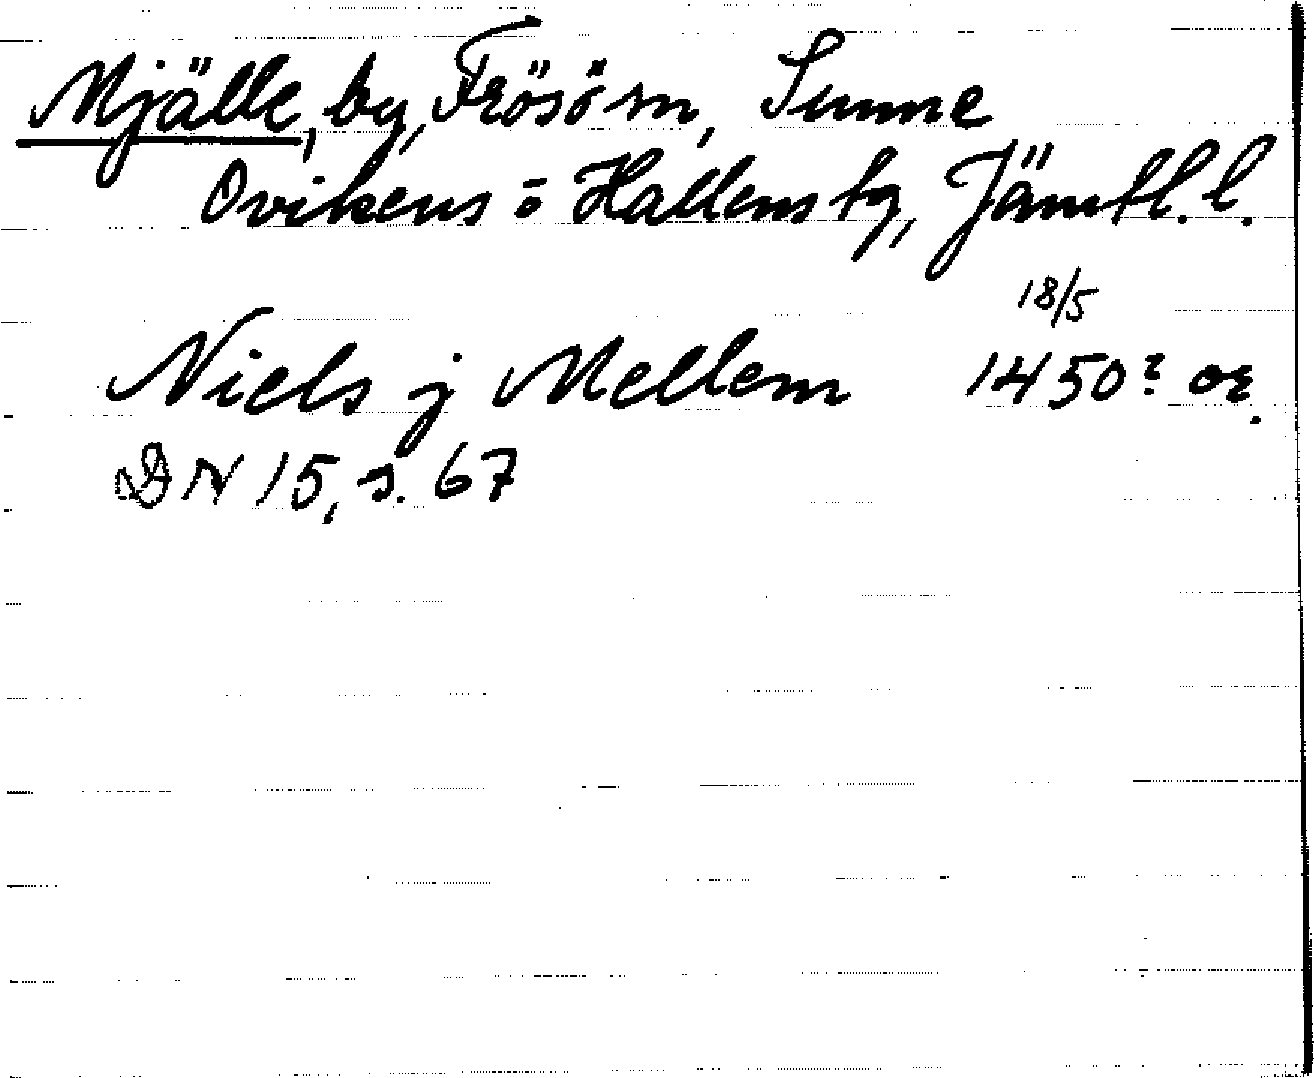 Mjälle, by, Frösö sn, Sunne
Ovikens o Hallens tg, Jämtl. l.
18/5
Niels j Mellem 1450? or.
DN 15, s. 67